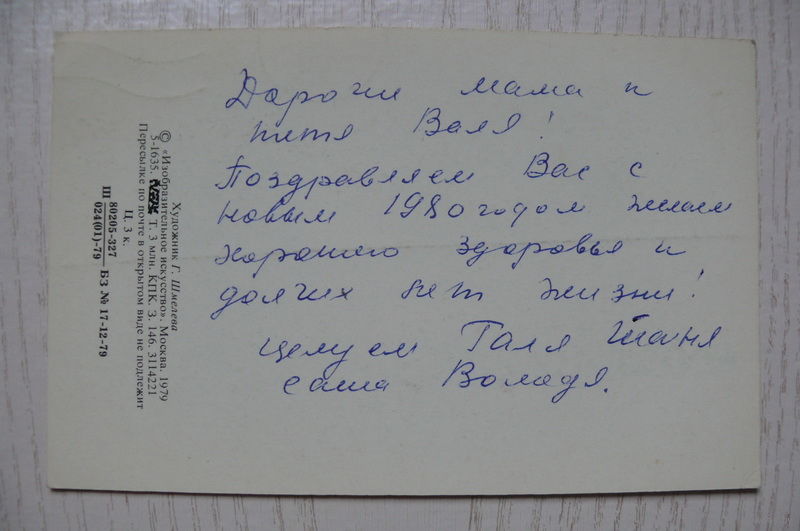 Дорогие мама и
тетя Валя!
Поздравляем Вас с
новым 1980 годом желаем
хорошего здоровья и
долгих лет жизни!
целуем Галя Таня
саша Володя.
Художник Г. Шмелева
© «Изобразительное искусство». Москва. 1979
5-1635. Т. 3 млн. КПК. З. 146. 3114221
Ц. 3 к.
Пересылке по почте в открытом виде не подлежит
Ш 80205-327
024(01)-79 БЗ № 17-12-79